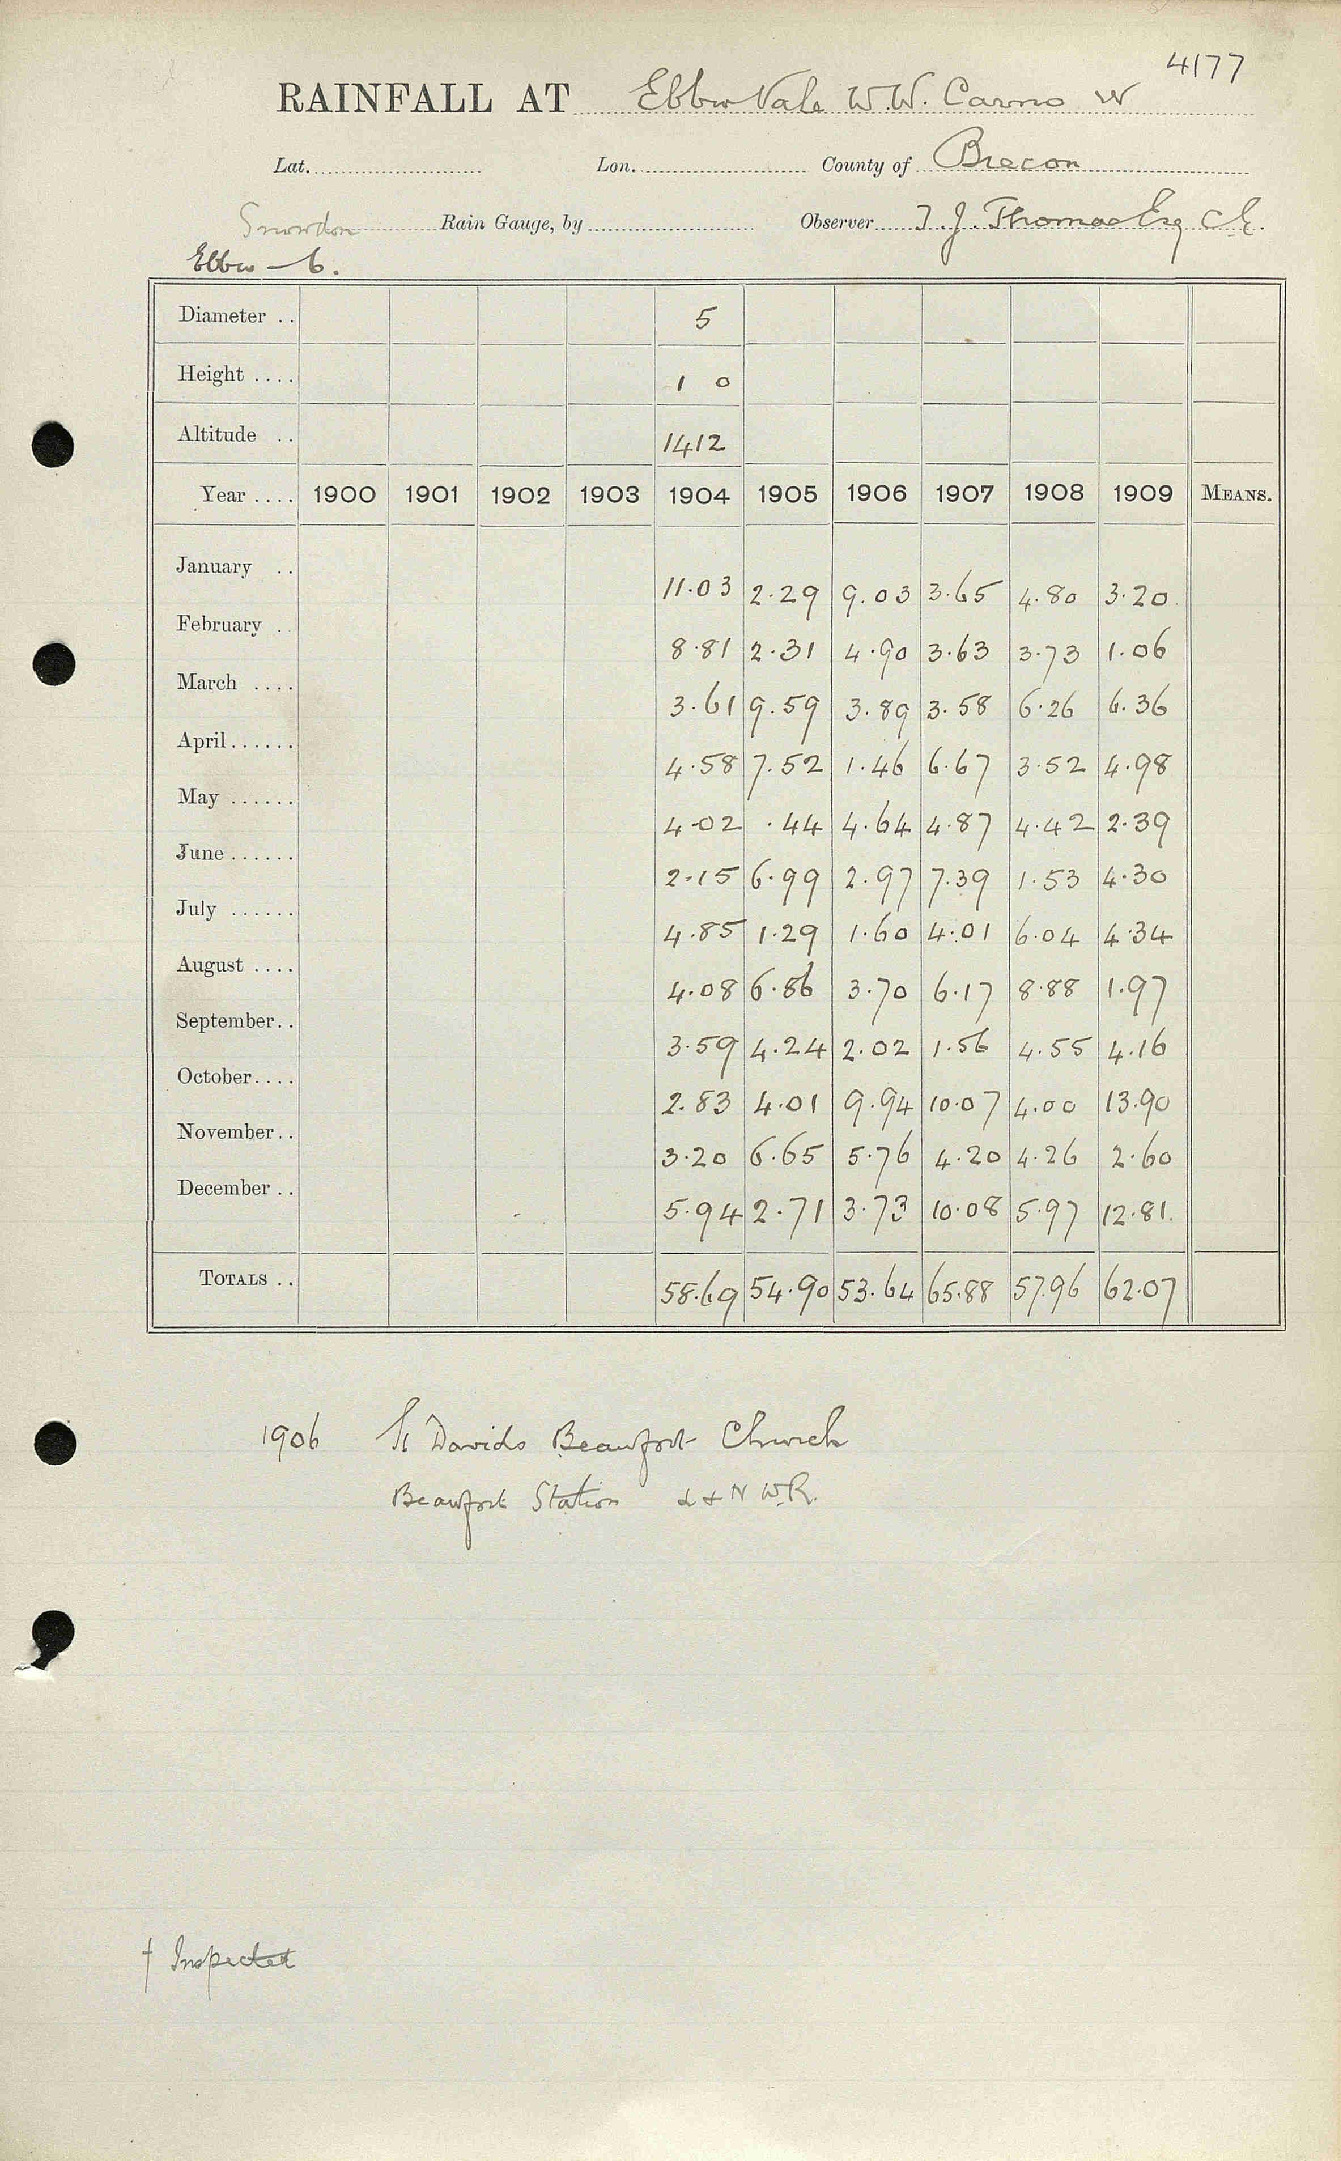 4177
RAINFALL AT Ebbw Vale W.W. Carno W
Lat. Lon. County of Brecon
Snowdon Rain Gauge, by Observer T. J. Thomas Esq C.E.
Ebbw – 6.
Diameter .. 5
Height .... 1 0
Altitude .. 1412
Year .... 1900 1901 1902 1903 1904 1905 1906 1907 1908 1909 MEANS.
January .. 11.03 2.29 9.03 3.65 4.80 3.20
February .. 8.81 2.31 4.90 3.63 3.73 1.06
March .... 3.61 9.59 3.89 3.58 6.26 6.36
April ...... 4.58 7.52 1.46 6.67 3.52 4.98
May ...... 4.02 .44 4.64 4.87 4.42 2.39
June ...... 2.15 6.99 2.97 7.39 1.53 4.30
July ...... 4.85 1.29 1.60 4.01 6.04 4.34
August .... 4.08 6.86 3.70 6.17 8.88 1.97
September.. 3.59 4.24 2.02 1.56 4.55 4.16
October.... 2.83 4.01 9.94 10.07 4.00 13.90
November.. 3.20 6.65 5.76 4.20 4.26 2.60
December .. 5.94 2.71 3.73 10.08 5.97 12.81
TOTALS .. 58.69 54.90 53.64 65.88 57.96 62.07
1906 St Davids Beaufort Church
Beaufort Station L & N W.R.
† Inspected